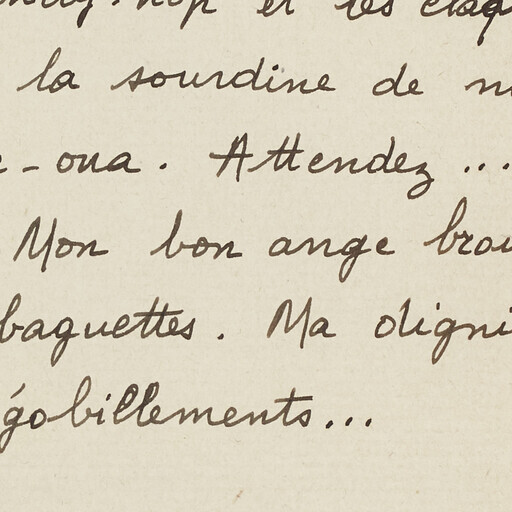 et les
la sourdine de
-oua. Attendez...
Mon bon ange
baguettes. Ma
gobillements...